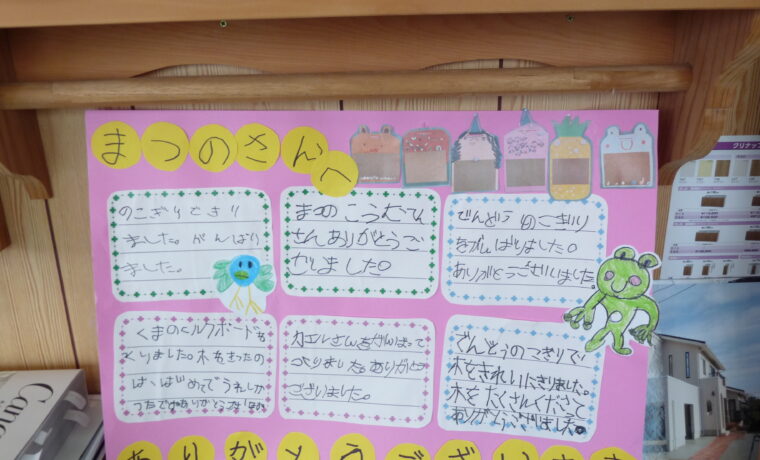 まつのさんへ
のこぎりできり
ました。がんばり
ました。
まつのこうむてん
さんありがとうご
ざいました。
でんどうのこぎり
がんばりました。
ありがとうございました。
くまのミルクボードを
くりました。木をきったの
は、はじめてでうれしか
ったですありがとうございました
カエルさんをがんばって
つくりました。ありがとう
ございました。
でんどうのこぎりで
木をきれいにきりました。
木をたくさんくださって
ありがとうございました。
ありがとうございました
クリナップ